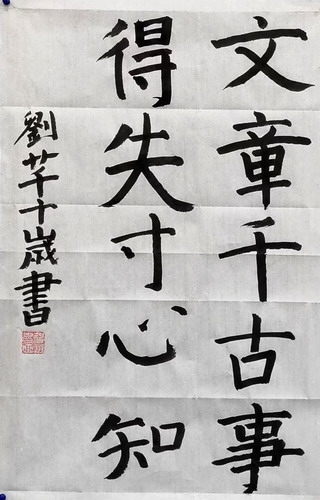 文章千古事
得失寸心知
劉芊十歲書